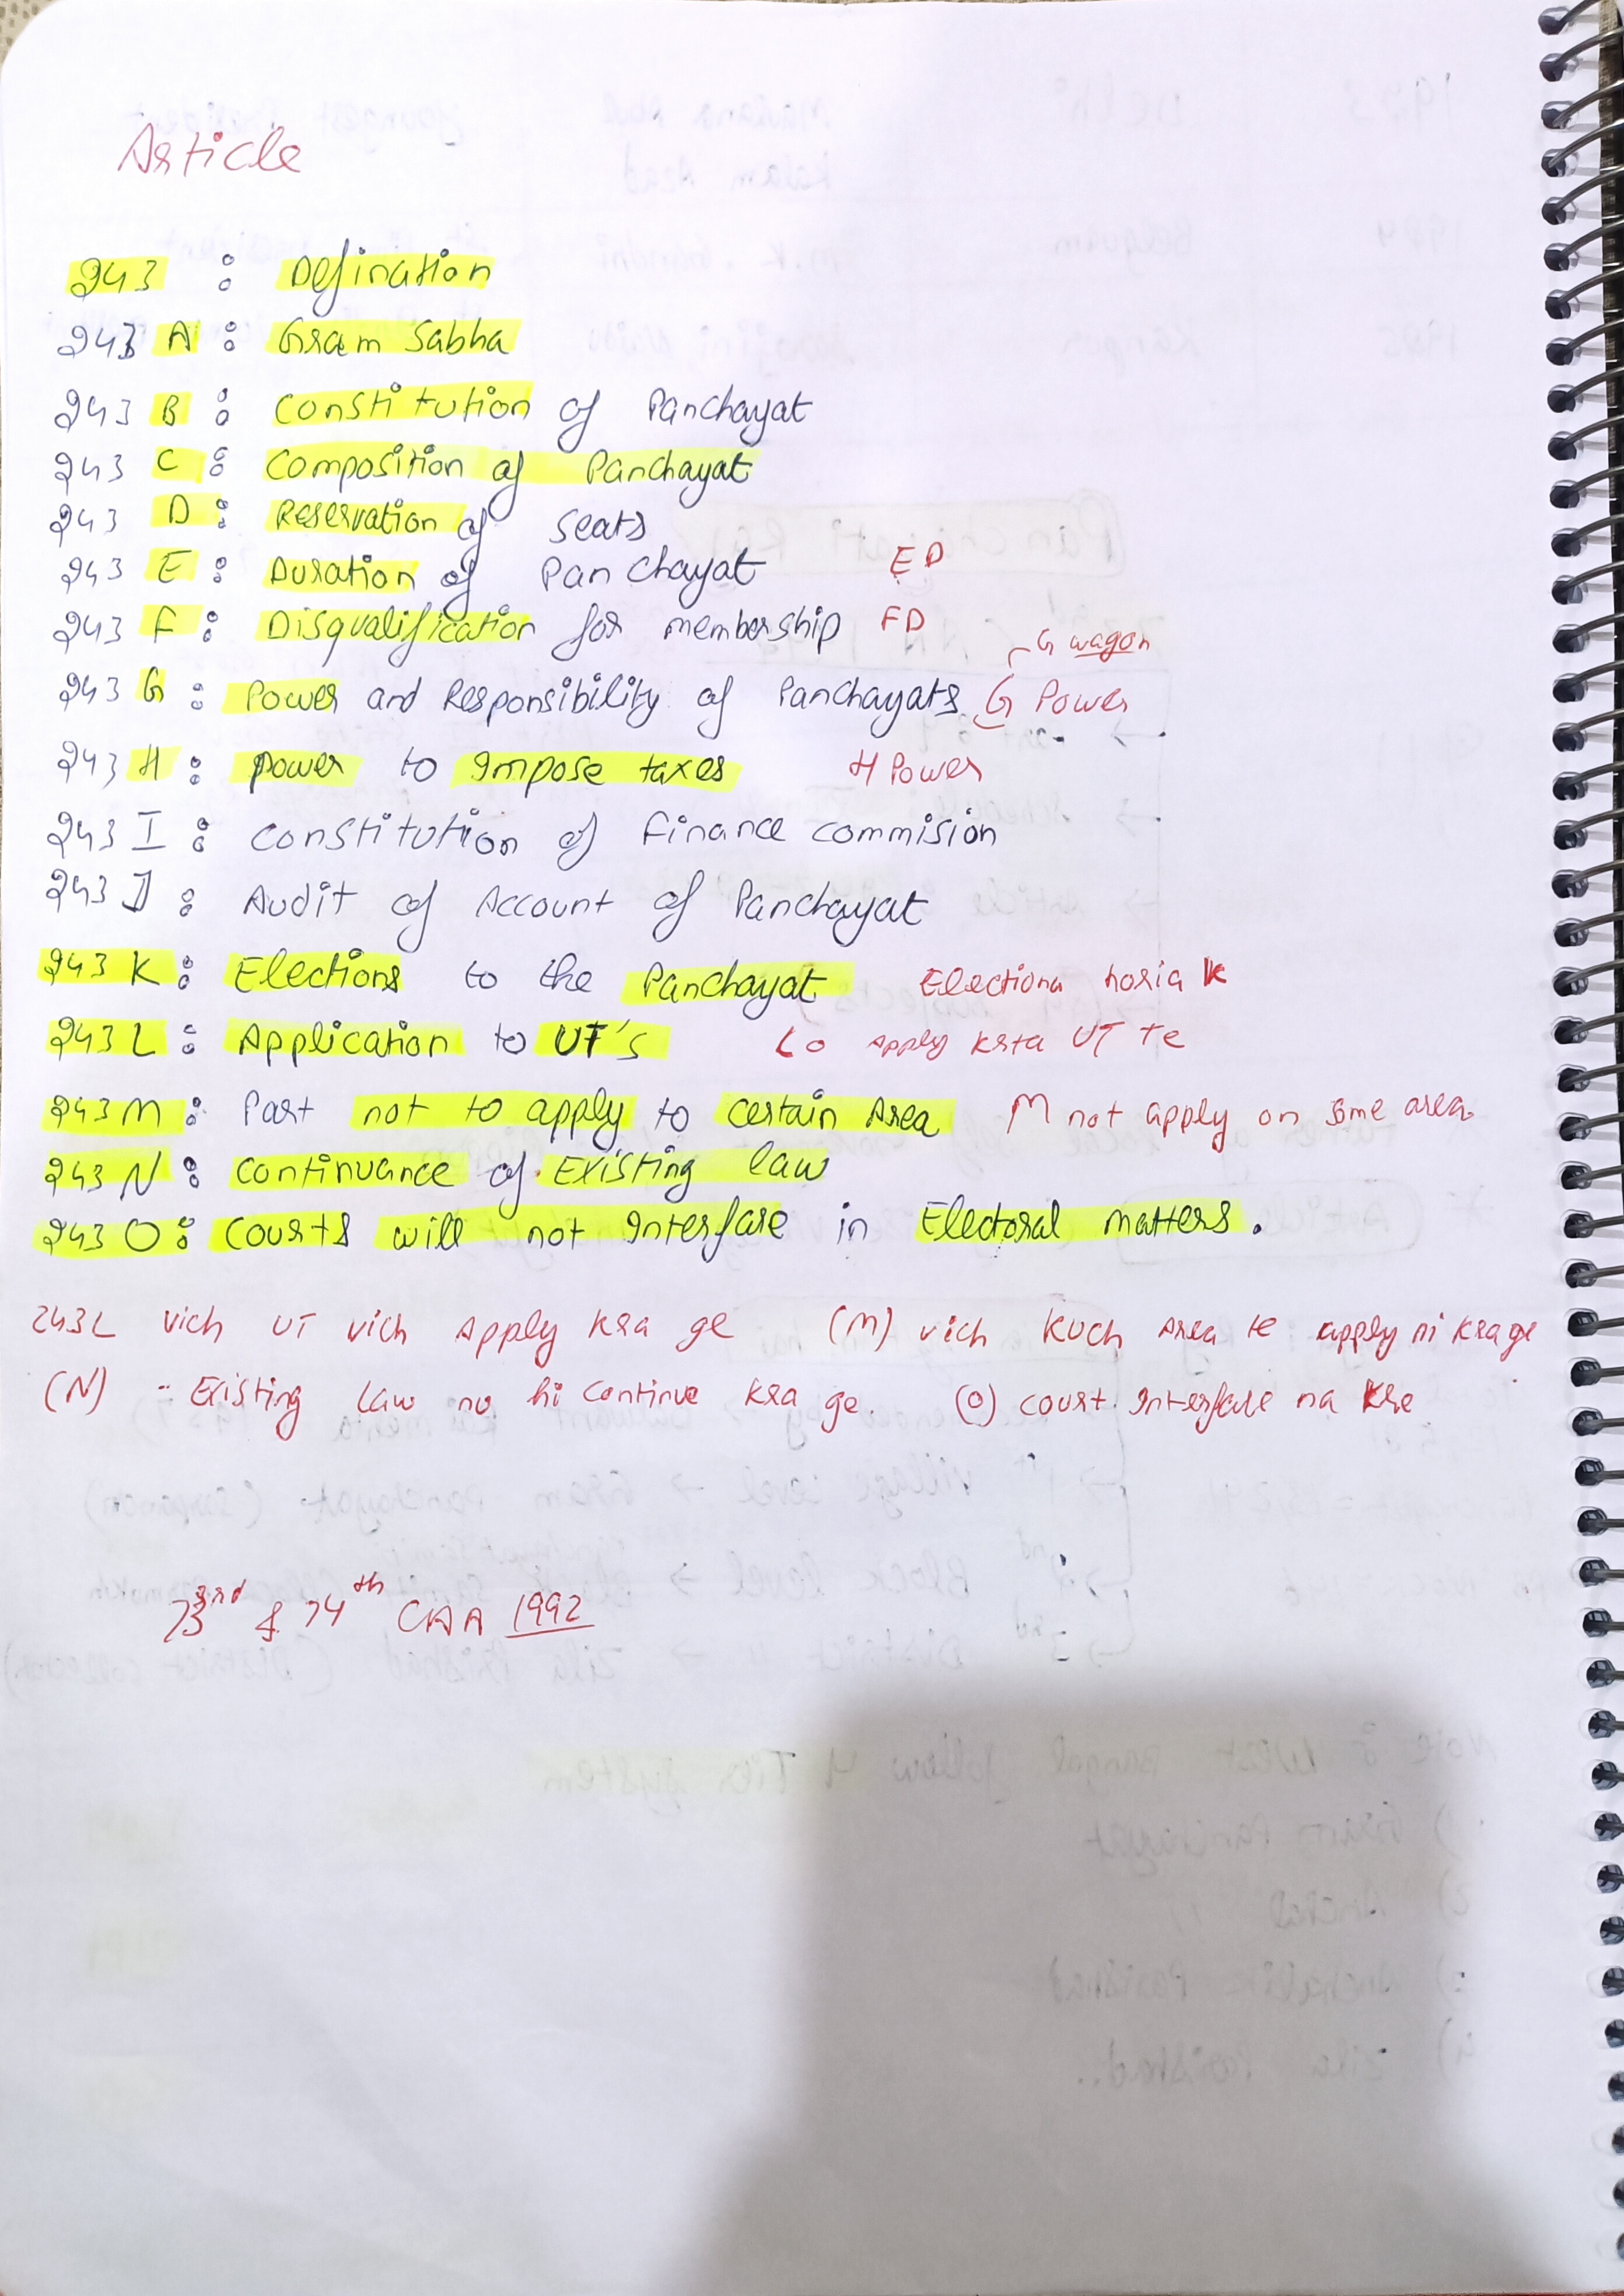 Article
243 : Defination
243 A : Gram Sabha
243 B : Constitution of Panchayat
243 C : Composition of Panchayat
243 D : Reservation of Seats
243 E : Duration of Panchayat ED
243 F : Disqualification for membership FD
G wagon
243 G : Power and Responsibility of Panchayats. G Power
243 H : power to Impose taxes H Power
243 I : Constitution of Finance commision
243 J : Audit of Account of Panchayat
243 K : Elections to the Panchayat Electiona horia K
243 L : Application to UT's Lo Apply krta UT Te
243 M : Part not to apply to certain Area M not apply on some area.
243 N : Continuance of Existing law
243 O : Courts will not Interfare in Electoral matters.
243L vich UT vich Apply kra ge (M) vich kuch Area te apply ni kra ge
(N) - Existing Law nu hi continue kra ge. (O) court Interfare na kre
73rd & 74th CAA 1992